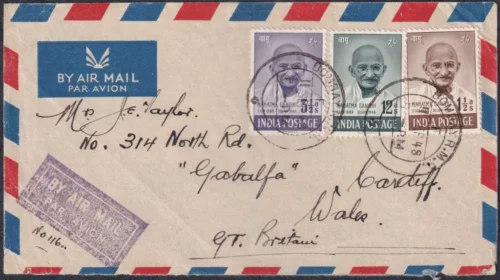 BY AIR MAIL
PAR AVION
बापू
3½ As
MAHATMA GANDHI
INDIA POSTAGE
बापू
12 As
MAHATMA GANDHI
INDIA POSTAGE
बापू
1½ As
MAHATMA GANDHI
INDIA POSTAGE
BOMBAY
48
Mr J. E. Taylor.
No. 314 North Rd.
"Gabalfa"
Cardiff.
Wales.
GT. Britani
BY AIR MAIL
PAR AVION
No 116..